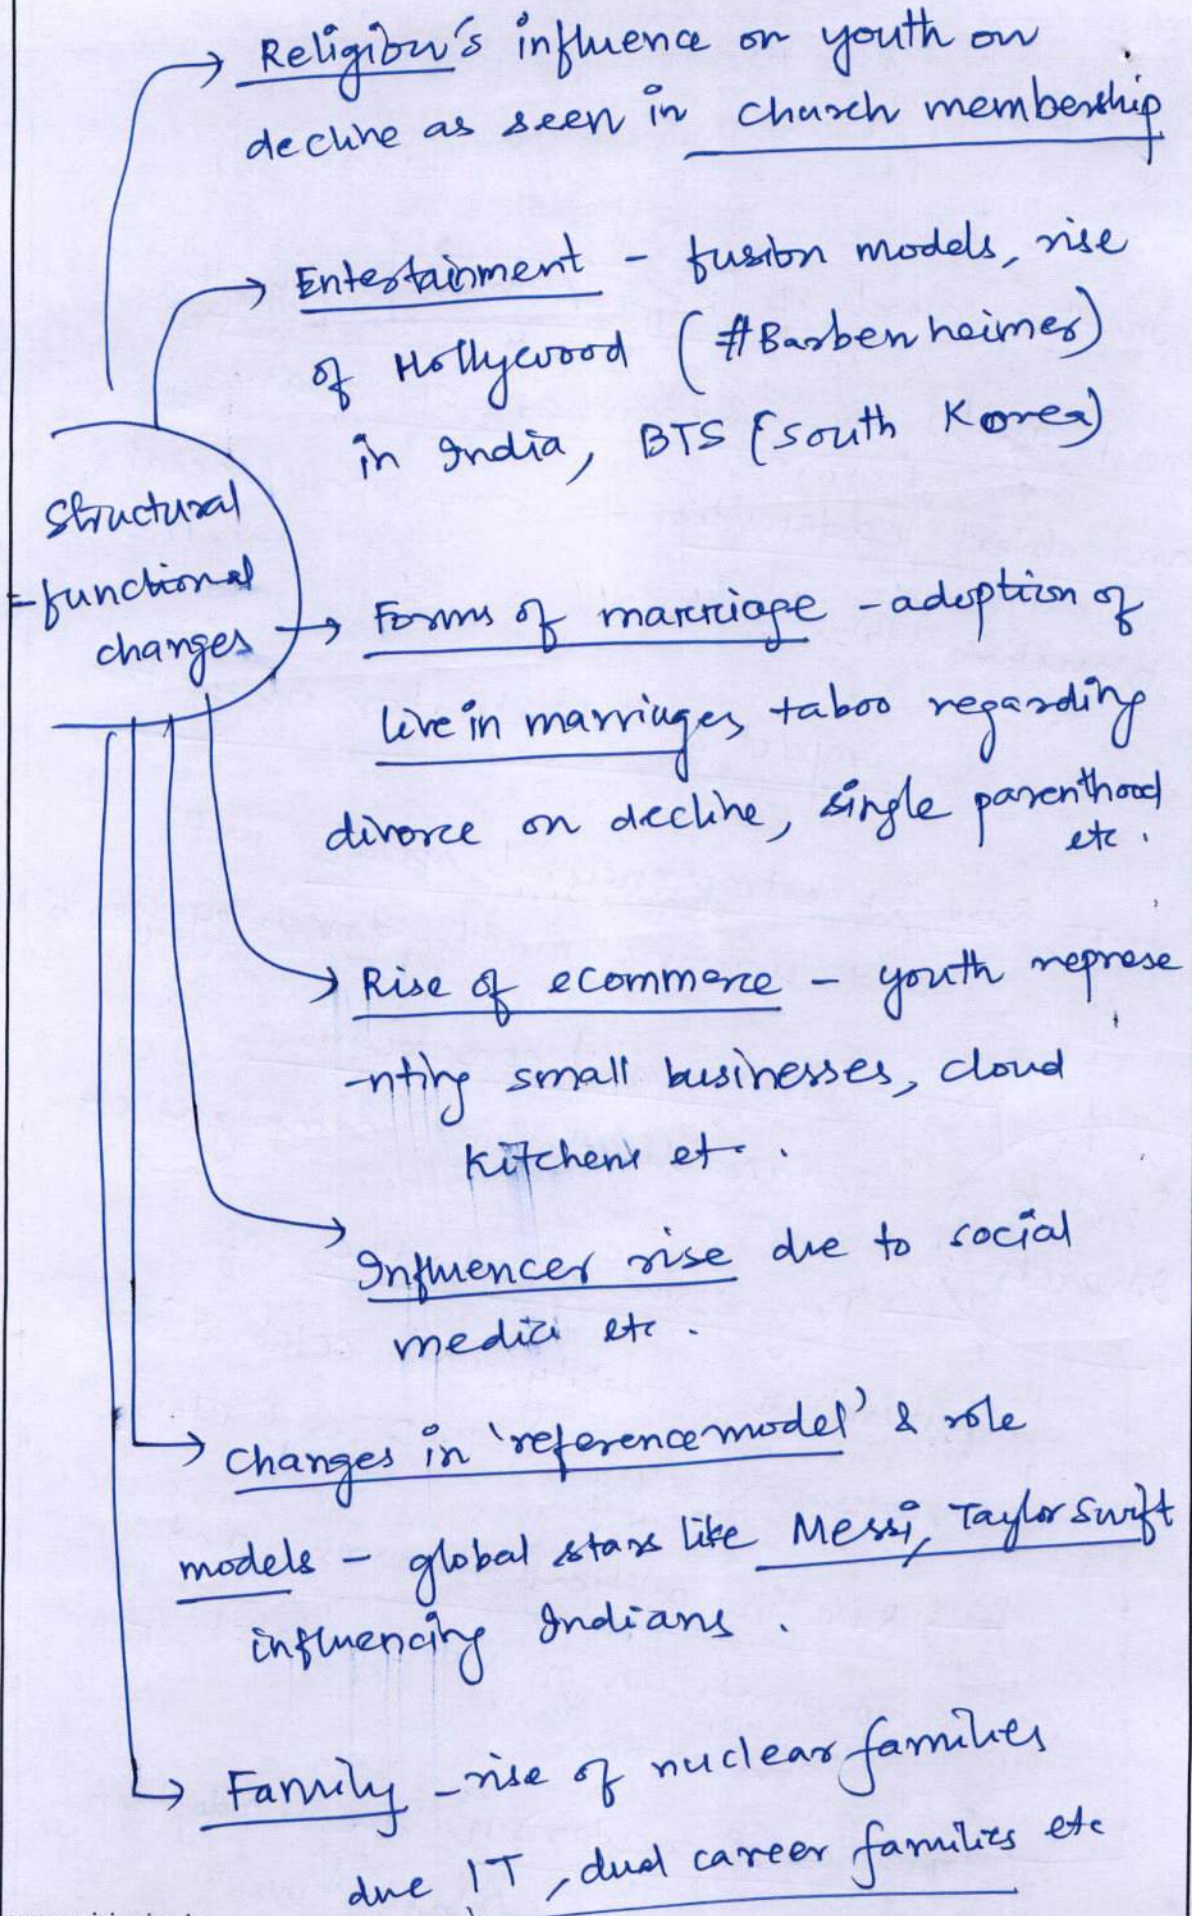 Religion's influence on youth on
decline as seen in church membership
Entertainment - fusion models, rise
of Hollywood (#Barbenheimer)
in India, BTS (South Korea)
Structural
-functional
changes
Forms of marriage - adoption of
live in marriages, taboo regarding
divorce on decline, single parenthood
etc.
Rise of ecommerce - youth represe
-nting small businesses, cloud
kitchens etc.
Influencer rise due to social
media etc.
Changes in 'reference model' & role
models - global stars like Messi, Taylor Swift
influencing Indians.
Family - rise of nuclear families
due IT, dual career families etc